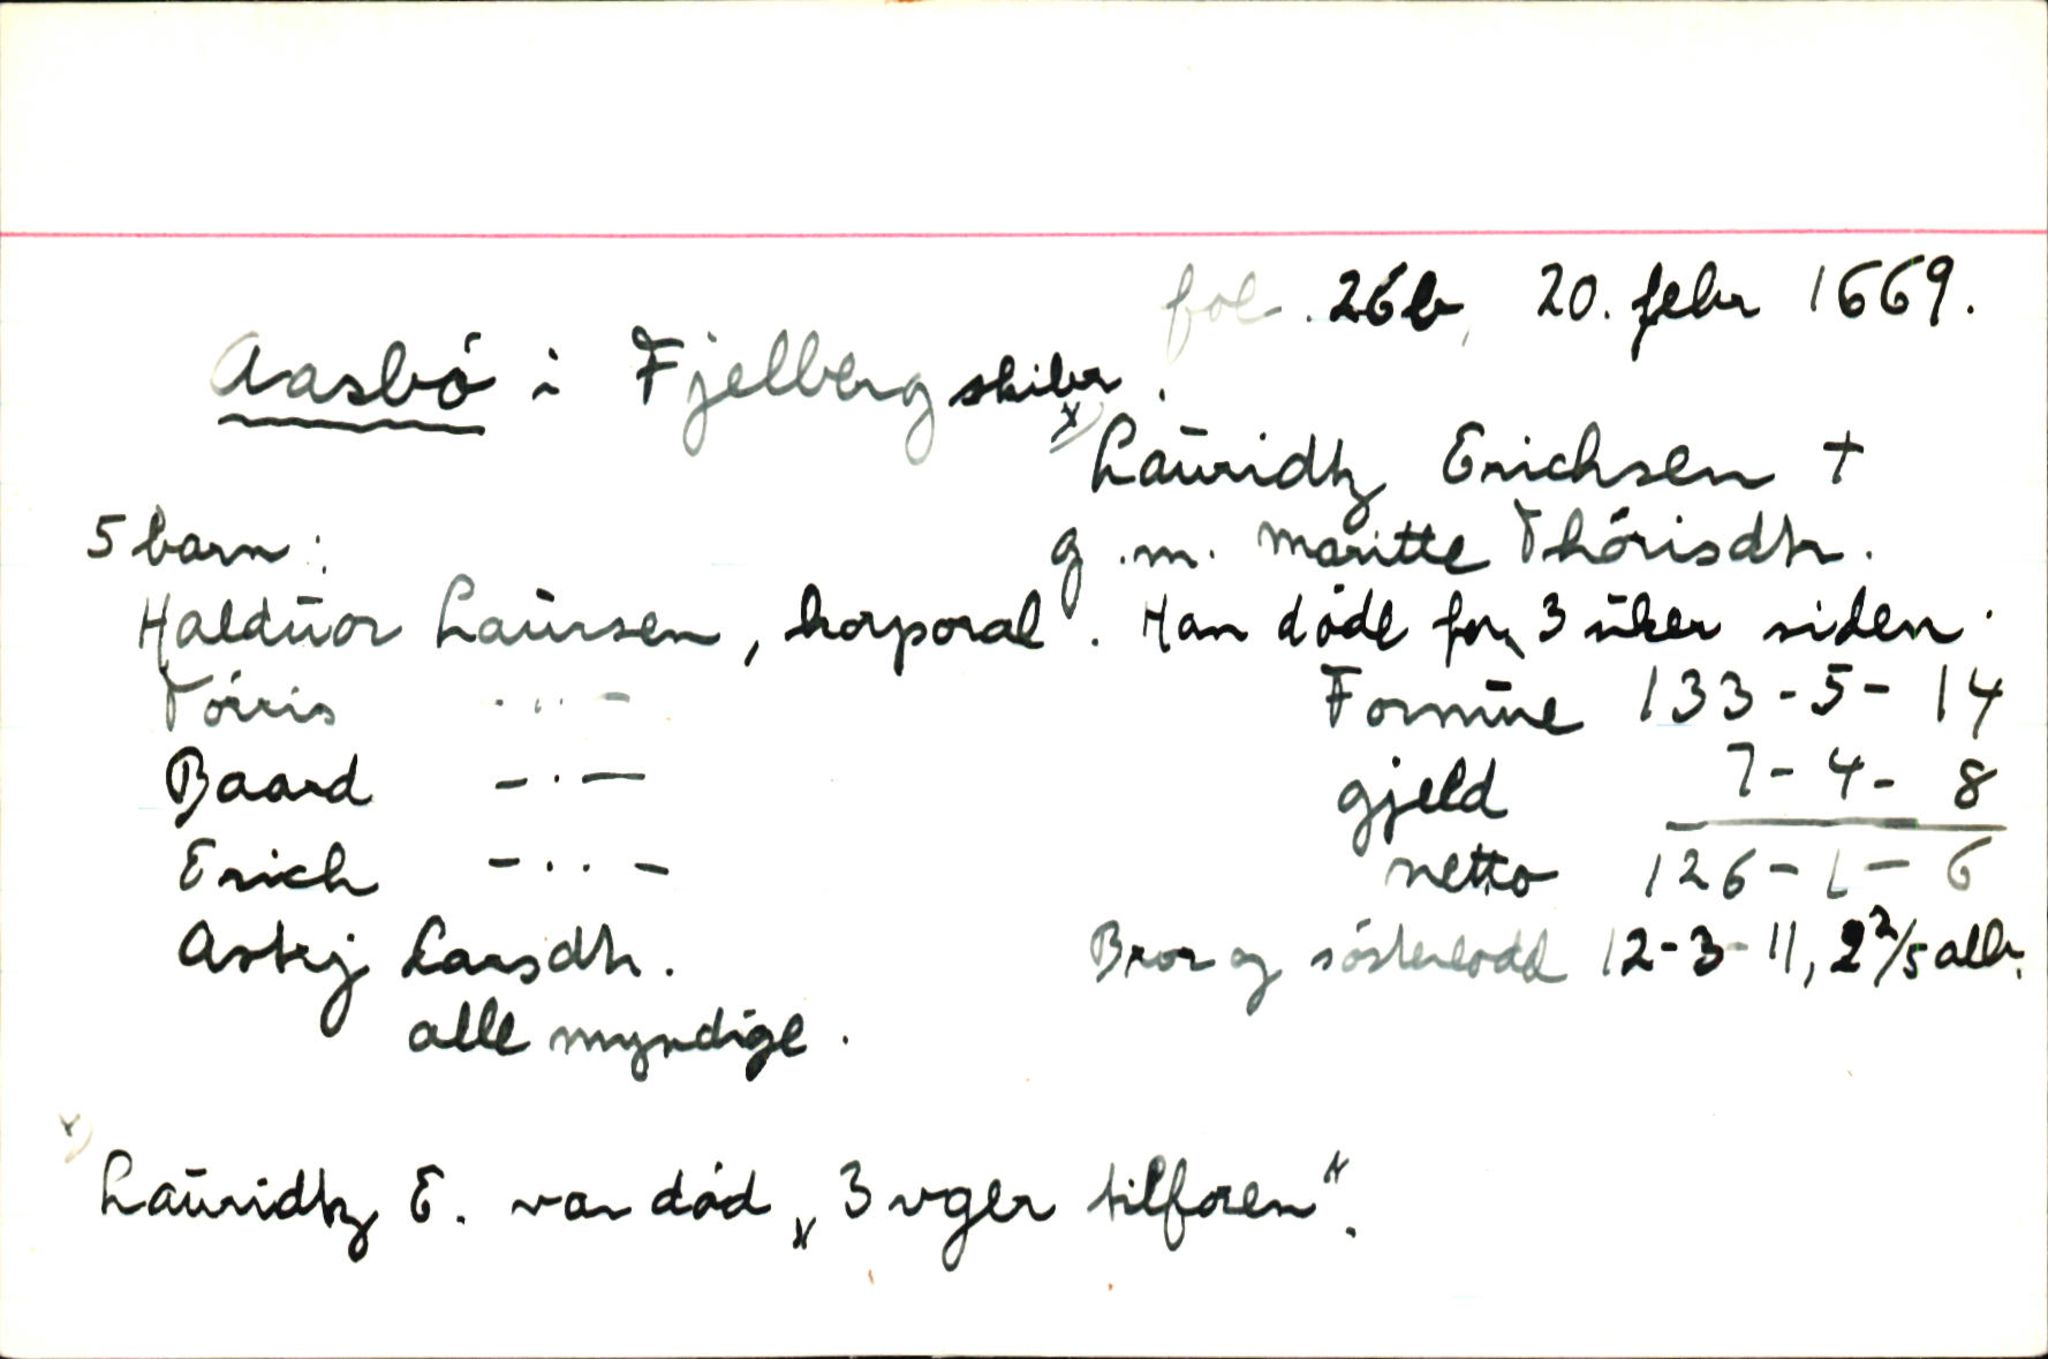 fol. 26b, 20. febr 1669.
Aasbö i Fjelberg skibr.
x) Lauridtz Erichsen +
g.m. Maritte Thörisdtr.
Han döde for 3 uker siden.
Formue 133-5-14
gjeld 7-4-8
netto 126-1-6
Bror og sösterlodd 12-3-11, 2 2/5 alb.
5 barn:
Halduor Laursen, korporal
Törris -..-
Baard -.-
Erich -..-
Larsdtr.
alle myndige.
x) Lauridtz E. var död „3 vger tilforen“.